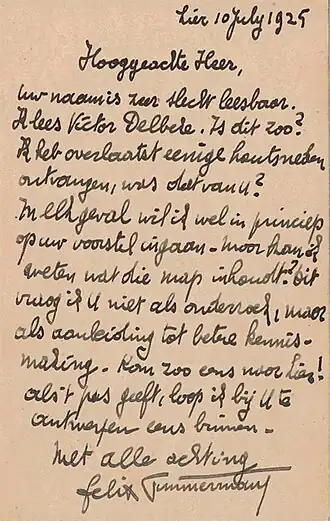 Lier 10 July 1925
Hooggeachte Heer,
uw naam is zeer slecht leesbaar.
Ik lees Victor Delbeke. Is dit zoo?
Ik heb overlaatst eenige houtsneden
ontvangen, was dat van u?
In elk geval wil ik wel in princiep
op uw voorstel ingaan - maar kan ik
weten wat die map inhoudt? Dit
vraag ik u niet als onderzoek, maar
als aanleiding tot betere kennis-
making - Kom zoo eens naar Lier!
als 't pas geeft, loop ik bij U te
Antwerpen eens binnen -
Met alle achting
Felix Timmermans